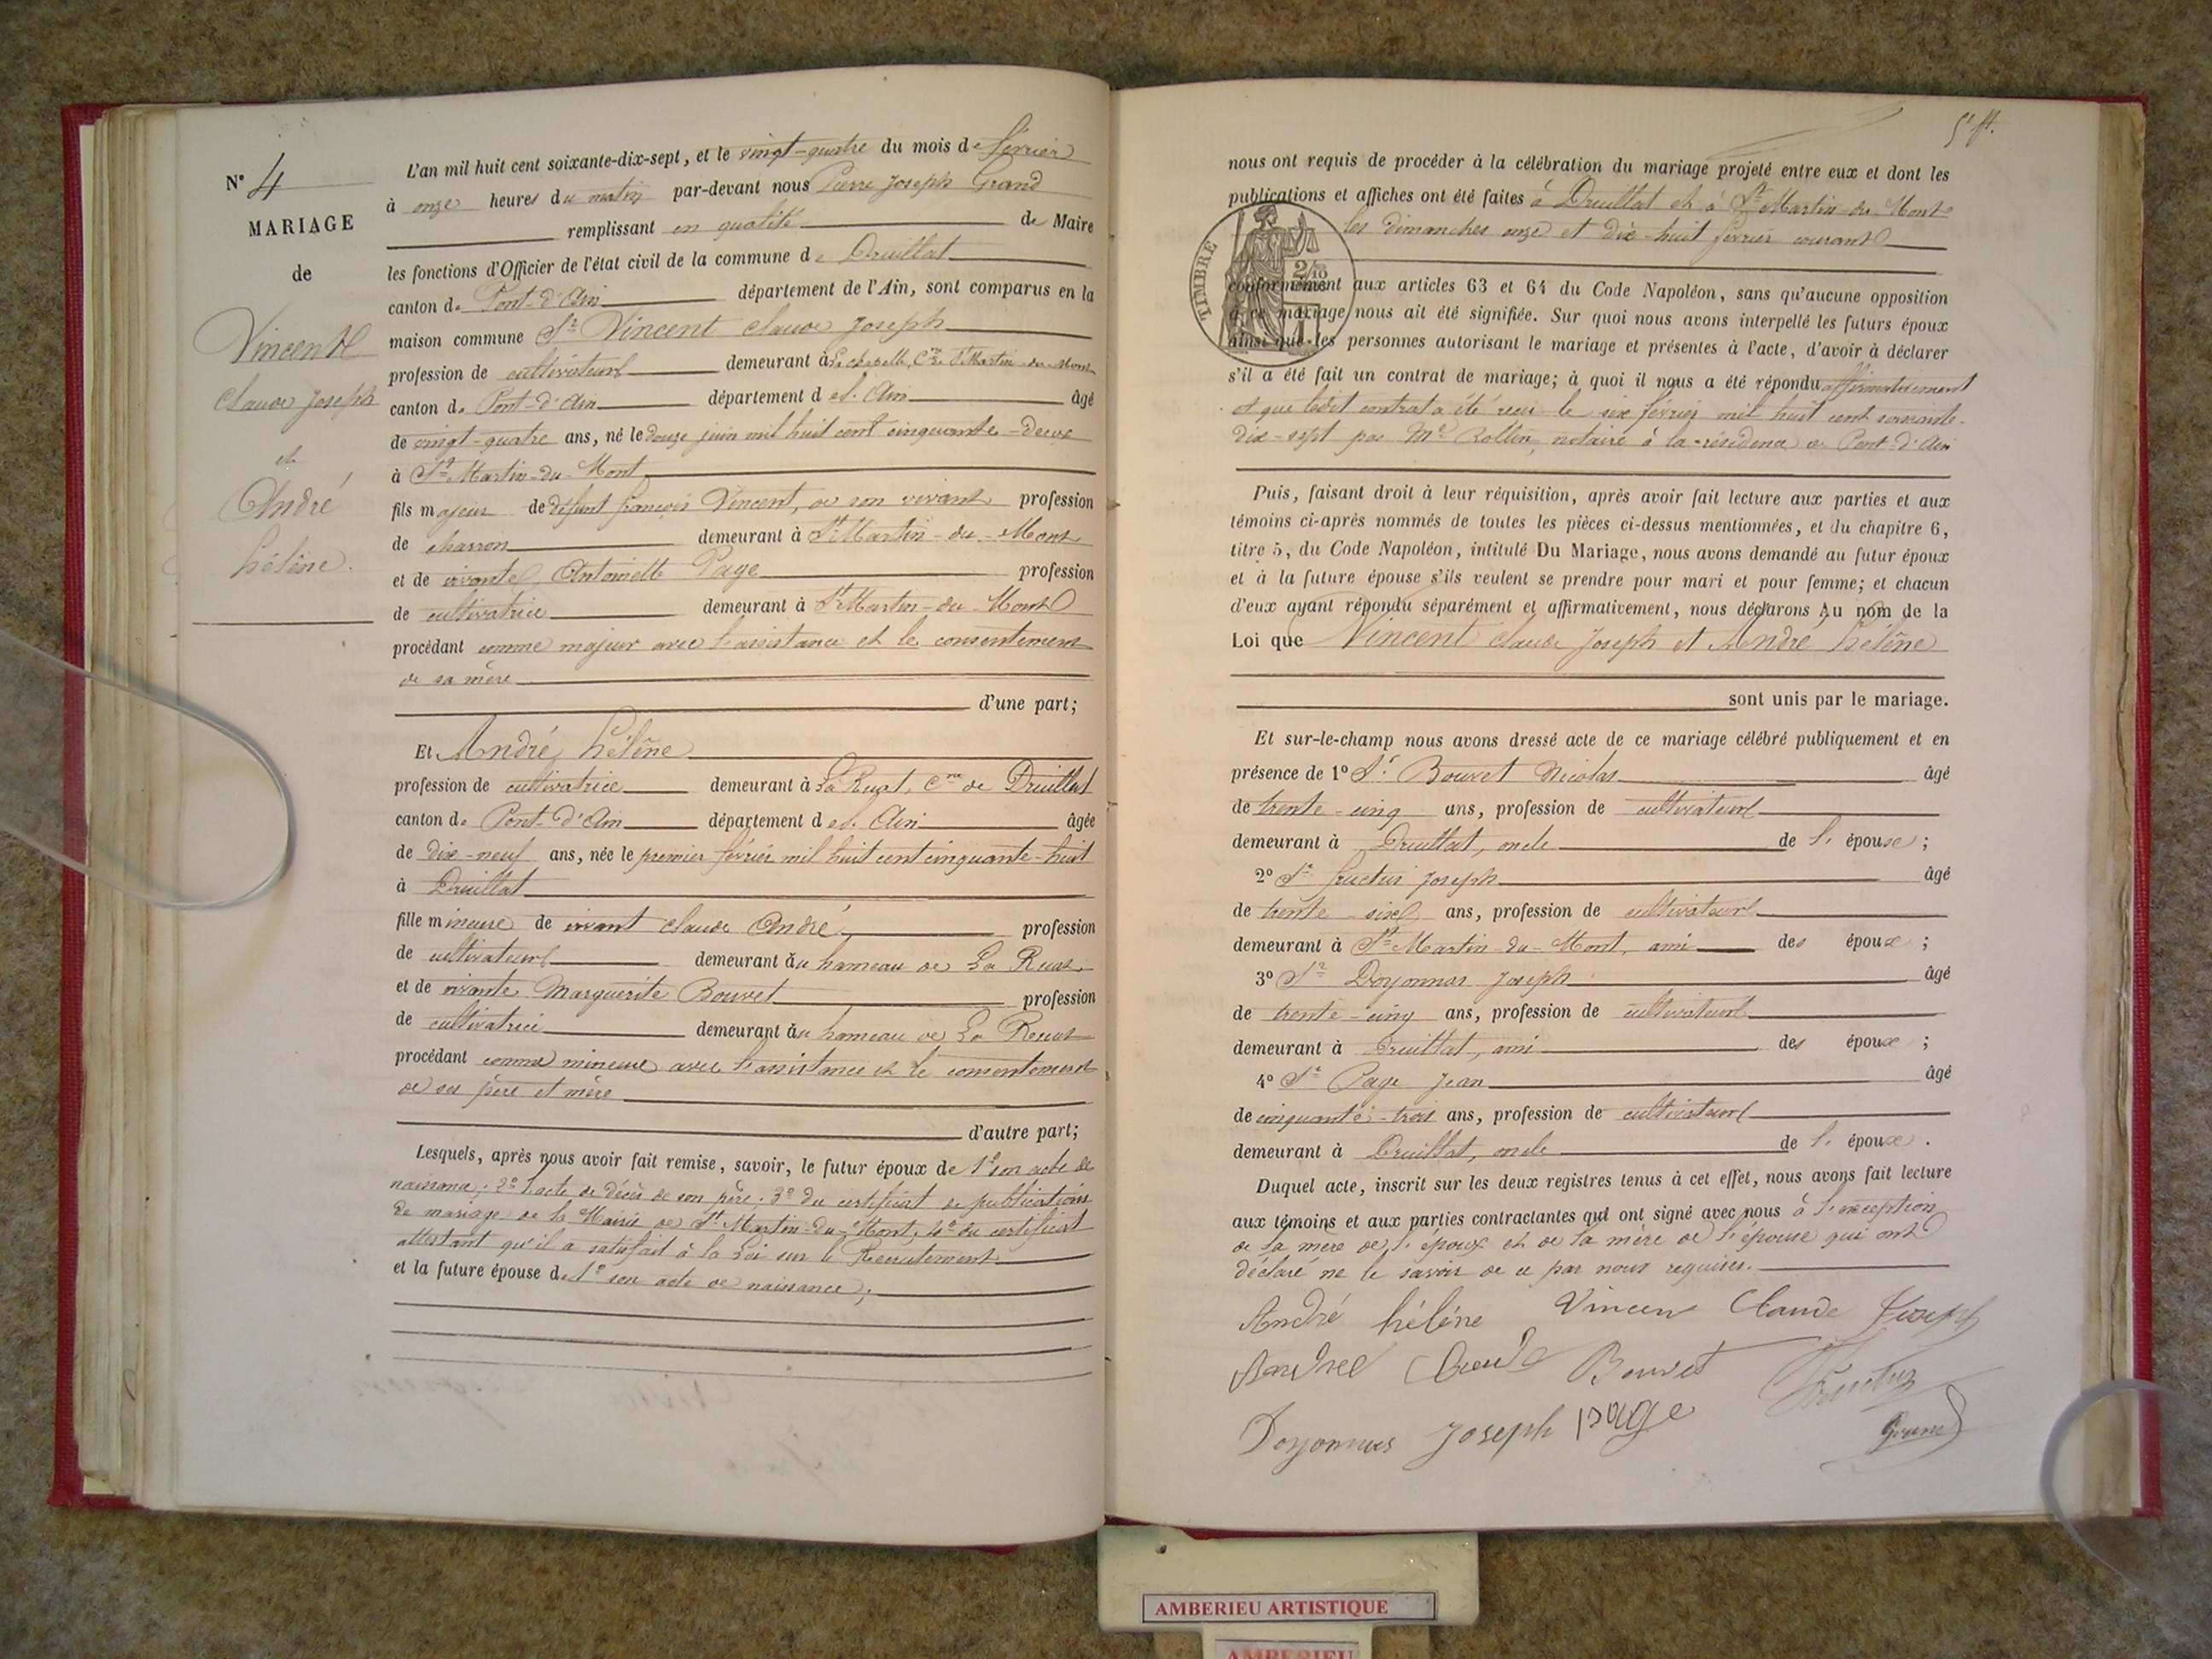 N° 4
MARIAGE
de
Vincent
Claude Joseph
et
André
hélène.
L'an mil huit cent soixante-dix-sept, et le vingt-quatre du mois de février
à onze heures du matin par-devant nous Pierre Joseph Grand
remplissant en qualité de Maire
les fonctions d'Officier de l'état civil de la commune de Druillat
canton de Pont-d'Ain département de l'Ain, sont comparus en la
maison commune Sr Vincent Claude Joseph
profession de cultivateur demeurant à La chapelle, Cne de St Martin-du-Mont
canton de Pont-d'Ain département de l'Ain âgé
de vingt-quatre ans, né le douze juin mil huit cent cinquante-deux
à St Martin-du-Mont
fils majeur de défunt françois Vincent, de son vivant profession
de charron demeurant à St Martin-du-Mont
et de vivante Antoinette Page profession
de cultivatrice demeurant à St Martin-du-Mont
procédant comme majeur avec l'assistance et le consentement
de sa mère
d'une part;
Et André hélène
profession de cultivatrice demeurant à La Ruat, Cne de Druillat
canton de Pont-d'Ain département de l'Ain âgée
de dix-neuf ans, née le premier février mil huit cent cinquante-huit
à Druillat
fille mineure de vivant Claude André profession
de cultivateur demeurant au hameau de La Ruat
et de vivante Marguerite Bouvet profession
de cultivatrice demeurant au hameau de La Ruat
procédant comme mineure avec l'assistance et le consentement
de ses père et mère
d'autre part;
Lesquels, après nous avoir fait remise, savoir, le futur époux de 1° son acte de
naissance; 2° l'acte de décès de son père; 3° du certificat de publications
de mariage de la Mairie de St Martin-du-Mont; 4° du certificat
attestant qu'il a satisfait à la Loi sur le Recrutement
et la future épouse de 1° son acte de naissance;
nous ont requis de procéder à la célébration du mariage projeté entre eux et dont les
publications et affiches ont été faites à Druillat et à St Martin-du-Mont
les dimanches onze et dix-huit février courant
TIMBRE
2/10
conformément aux articles 63 et 64 du Code Napoléon, sans qu'aucune opposition
à ce mariage nous ait été signifiée. Sur quoi nous avons interpellé les futurs époux
ainsi que les personnes autorisant le mariage et présentes à l'acte, d'avoir à déclarer
s'il a été fait un contrat de mariage; à quoi il nous a été répondu affirmativement
et que ledit contrat a été reçu le six février mil huit cent soixante-
dix-sept par Me Rollin, notaire à la résidence de Pont-d'Ain
Puis, faisant droit à leur réquisition, après avoir fait lecture aux parties et aux
témoins ci-après nommés de toutes les pièces ci-dessus mentionnées, et du chapitre 6,
titre 5, du Code Napoléon, intitulé Du Mariage, nous avons demandé au futur époux
et à la future épouse s'ils veulent se prendre pour mari et pour femme; et chacun
d'eux ayant répondu séparément et affirmativement, nous déclarons Au nom de la
Loi que Vincent Claude Joseph et André hélène
sont unis par le mariage.
Et sur-le-champ nous avons dressé acte de ce mariage célébré publiquement et en
présence de 1° Sr Bouvet Nicolas âgé
de trente-cinq ans, profession de cultivateur
demeurant à Druillat, oncle de l'épouse;
2° Sr fructus Joseph âgé
de trente-six ans, profession de cultivateur
demeurant à St Martin-du-Mont, ami des époux;
3° Sr Doyonnas Joseph âgé
de trente-cinq ans, profession de cultivateur
demeurant à Druillat, ami des époux;
4° Sr Page Jean âgé
de cinquante-trois ans, profession de cultivateur
demeurant à Druillat, oncle de l'époux.
Duquel acte, inscrit sur les deux registres tenus à cet effet, nous avons fait lecture
aux témoins et aux parties contractantes qui ont signé avec nous à l'exception
de la mère de l'époux et de la mère de l'épouse qui ont
déclaré ne le savoir de ce par nous requises.
André hélène Vincent Claude Joseph
Claude Bouvet Fructus
Doyonnas Joseph page Grand
AMBERIEU ARTISTIQUE
AMBERIEU